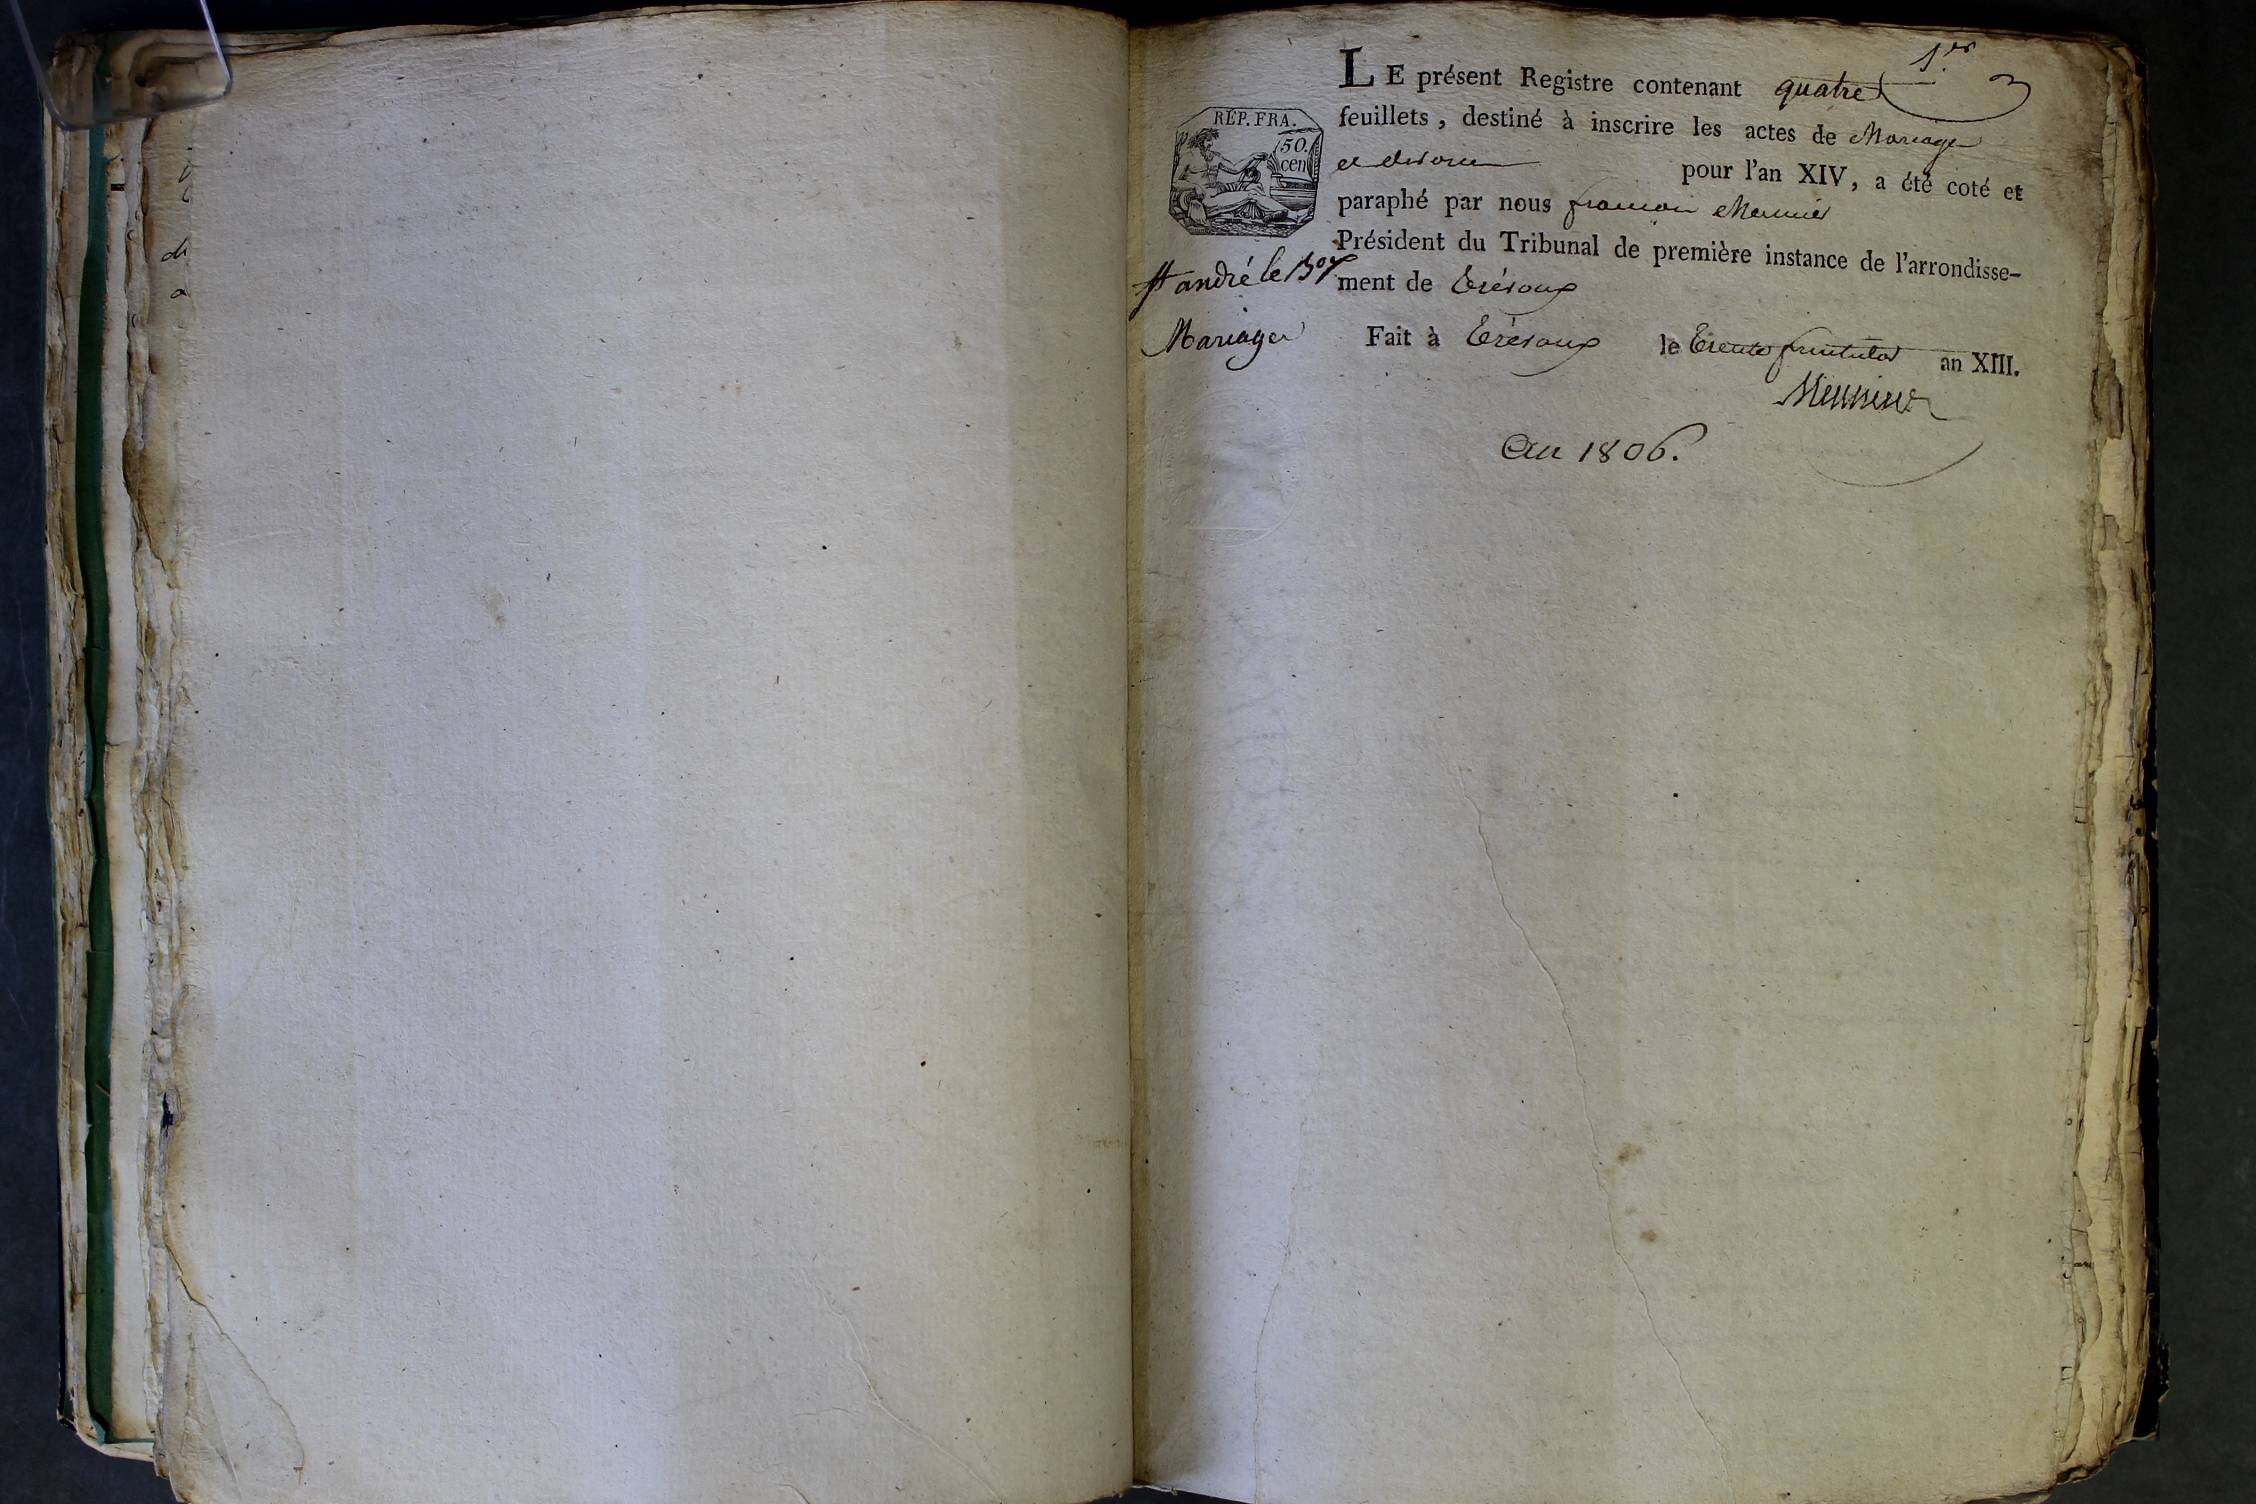 1.er
LE présent Registre contenant quatre
feuillets, destiné à inscrire les actes de Mariages
et divorces pour l'an XIV, a été coté et
paraphé par nous françois Meunier
Président du Tribunal de première instance de l'arrondisse-
ment de Trévoux
Fait à Trévoux le Trente fructidor an XIII.
Meunier
An 1806.
RÉP. FRA.
50.
cen
St andré le Boˢ
Mariages